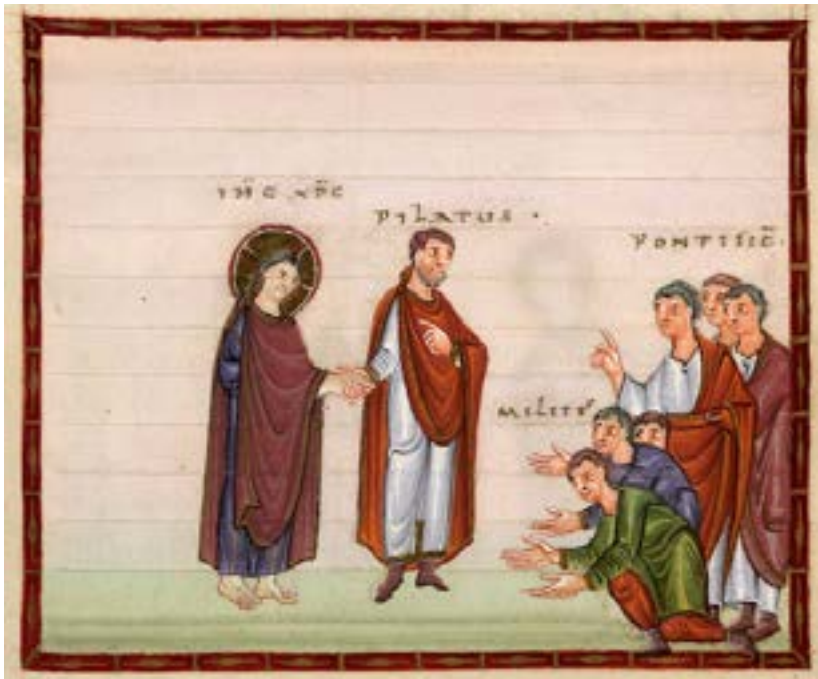 IH̅C XP̅C
PILATUS ·
PONTIFIC̅·
MILITꝰ